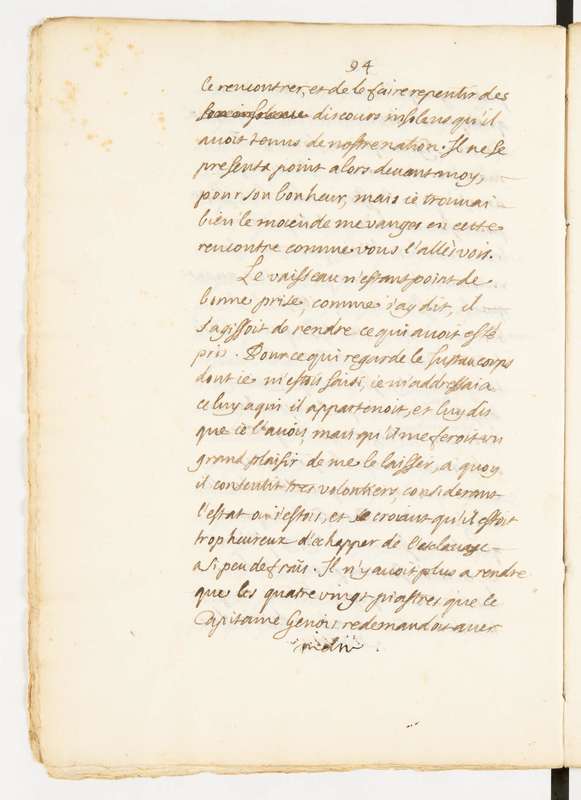 94
le rencontrer, et de le faire repentir des
son insolence discours insolens qu'il
avoit tenus de nostre nation. Il ne se
presenta point alors devant moy,
pour son bonheur, mais ie trouvai
bien le moien de me vanger en cette
rencontre comme vous l'allés voir.
Le vaisseau n'estant point de
bonne prise, comme i'ay dit, il
s'agissoit de rendre ce qui avoit esté
pris. Pour ce qui regarde le Justaucorps
dont ie m'estois saisi, ie m'addressai a
celuy a qui il appartenoit, et luy dis
que ie l'avois mais qu'il me feroit un
grand plaisir de me le laisser, a quoy
il consentit tres volontiers, considerant
l'estat ou i'estois, et croiant qu'il estoit
trop heureux d'echapper de l'esclavage
a si peu de frais. Il n'y avoit plus a rendre
que les quatre vingt piastres que le
Capitaine Genois redemandoit avec